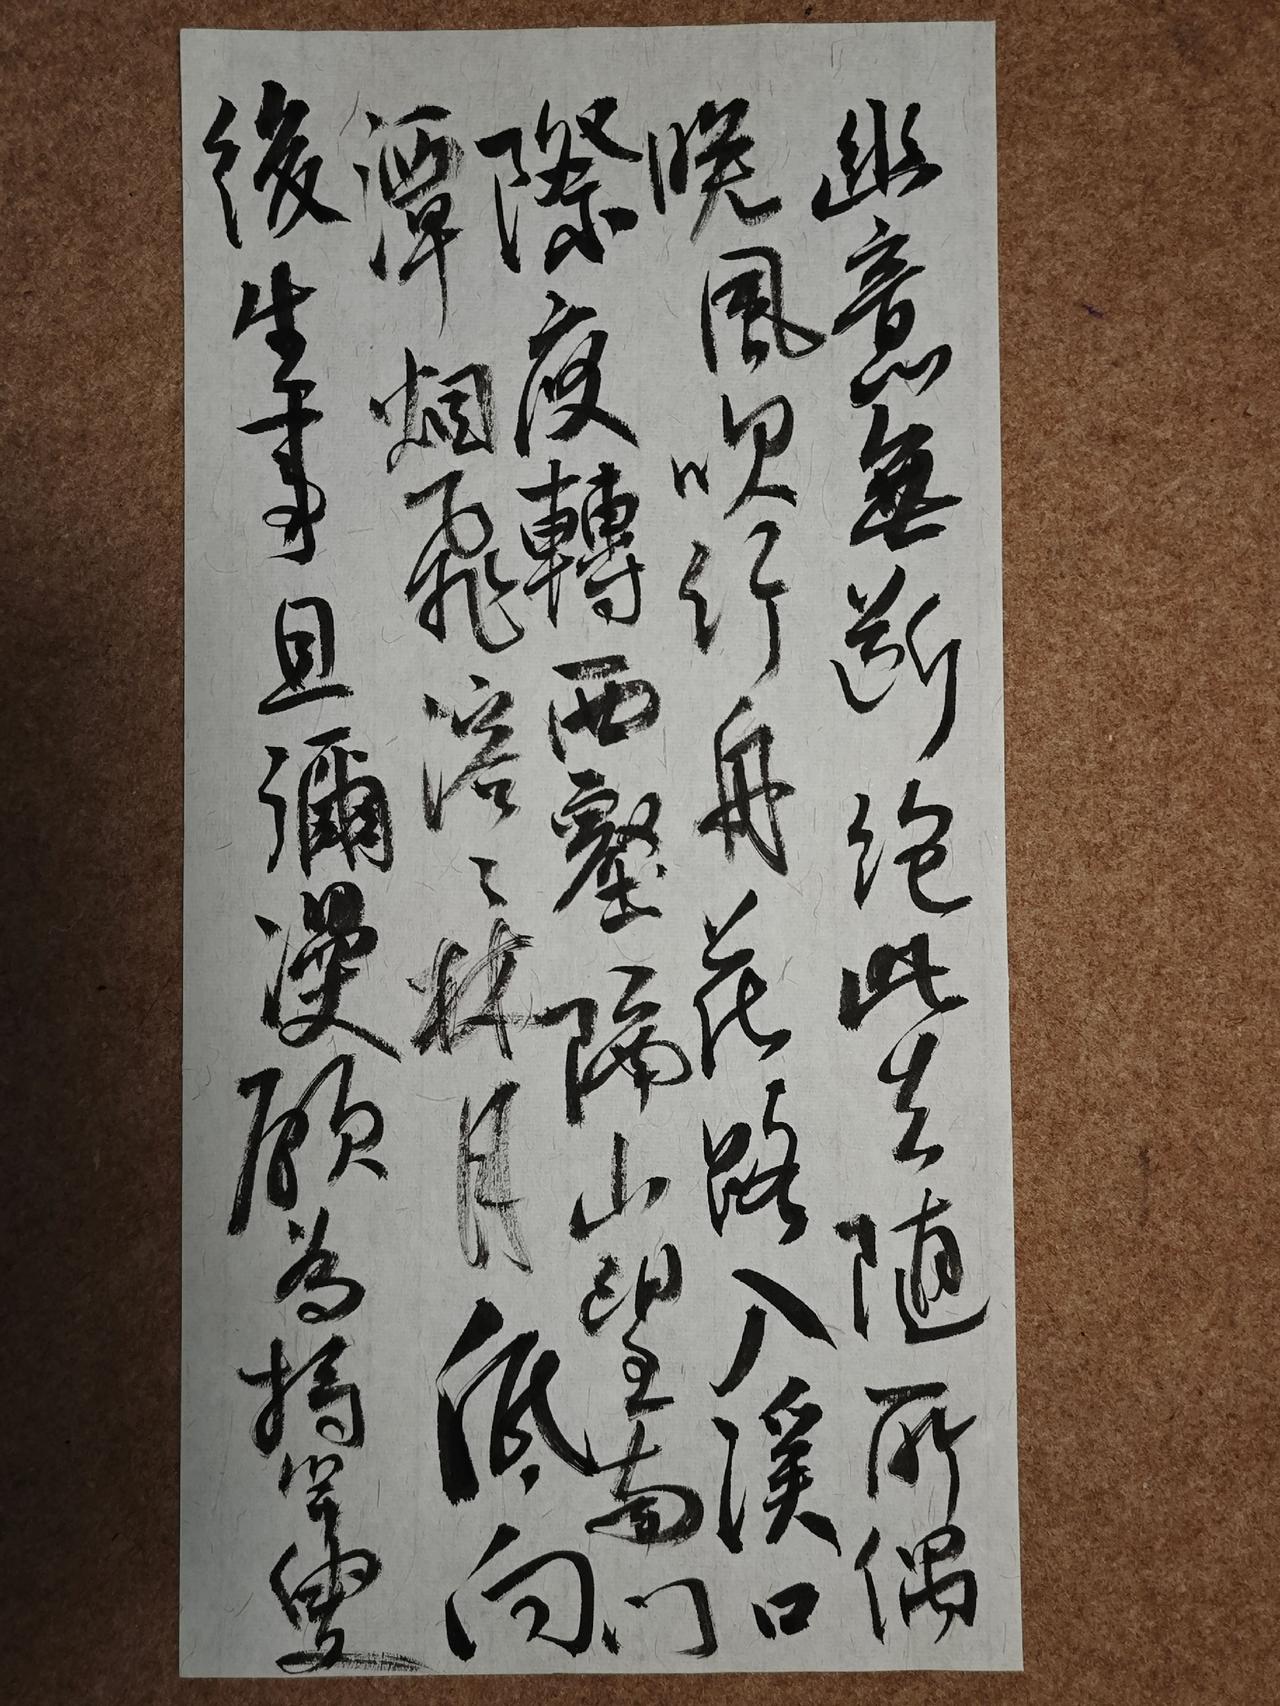 幽意無斷絶此去随所偶
晚風吹行舟花路入溪口
際夜轉西壑隔山望南门
潭烟飛溶々林月低向
後生事且彌漫願為持竿叟